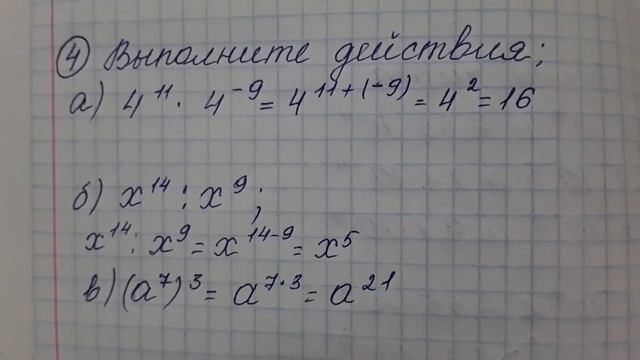 ④ Выполните действия;
а) 4¹¹ · 4⁻⁹ = 4¹¹⁺⁽⁻⁹⁾ = 4² = 16
б) x¹⁴ : x⁹;
x¹⁴ : x⁹ = x¹⁴⁻⁹ = x⁵
в) (a⁷)³ = a⁷˙³ = a²¹